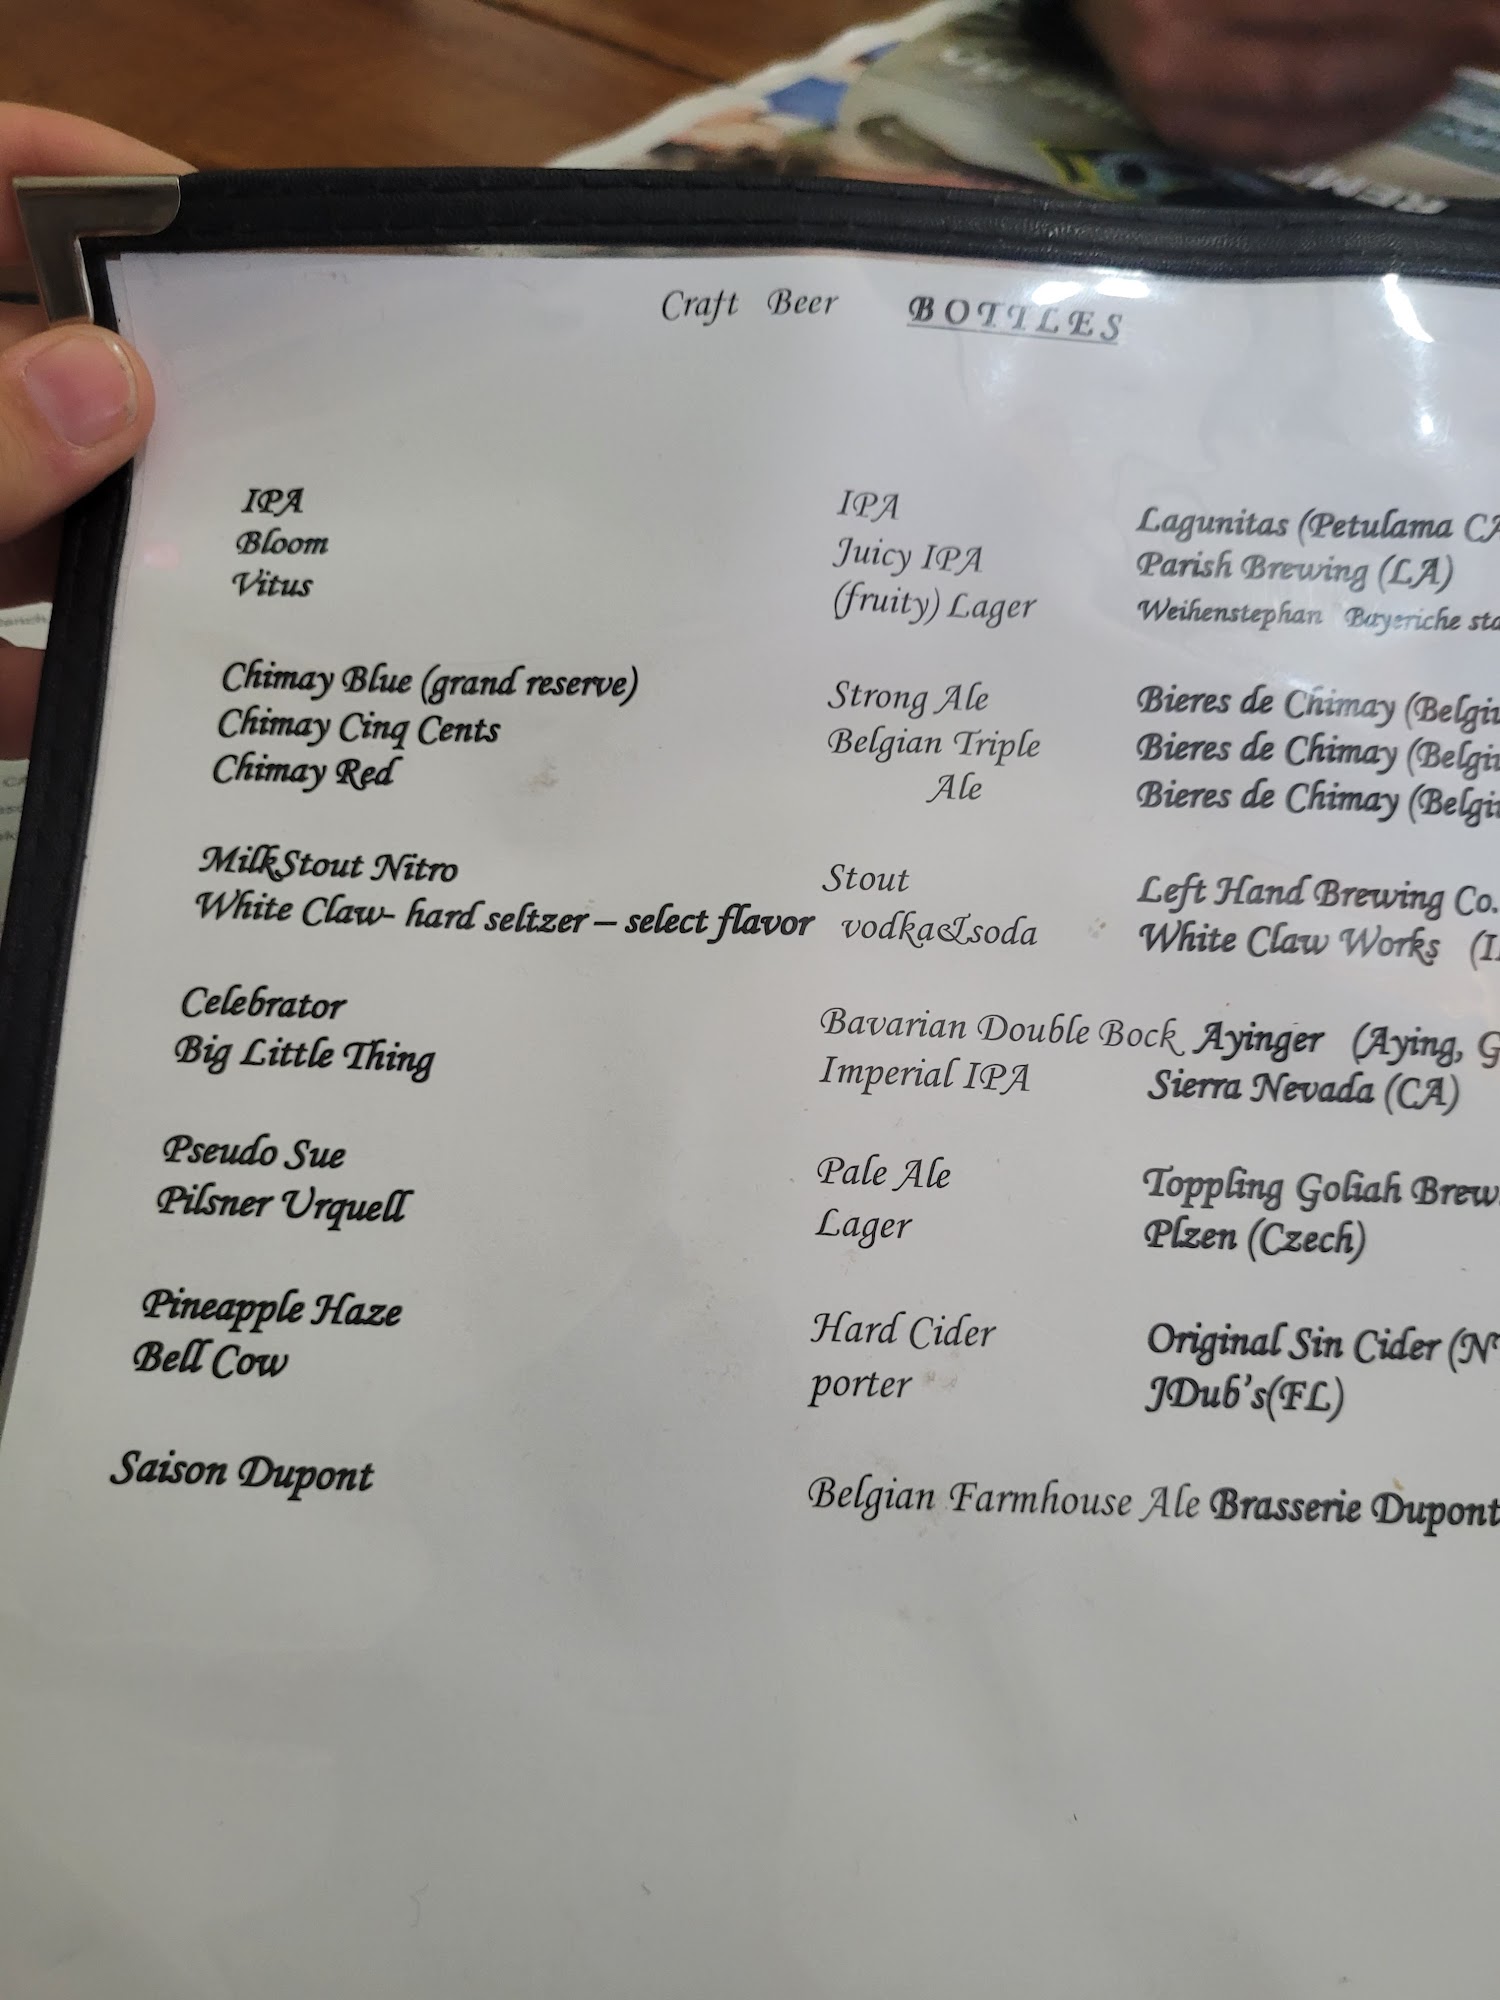 Craft Beer BOTTLES
IPA IPA Lagunitas (Petulama CA
Bloom Juicy IPA Parish Brewing (LA)
Vitus (fruity) Lager Weihenstephan Bayeriche sta
Chimay Blue (grand reserve) Strong Ale Bieres de Chimay (Belgiu
Chimay Cinq Cents Belgian Triple Bieres de Chimay (Belgiu
Chimay Red Ale Bieres de Chimay (Belgiu
MilkStout Nitro Stout Left Hand Brewing Co.
White Claw- hard seltzer – select flavor vodka&soda White Claw Works
Celebrator Bavarian Double Bock Ayinger (Aying, G
Big Little Thing Imperial IPA Sierra Nevada (CA)
Pseudo Sue Pale Ale Toppling Goliah Brew
Pilsner Urquell Lager Plzen (Czech)
Pineapple Haze Hard Cider Original Sin Cider (N
Bell Cow porter JDub's(FL)
Saison Dupont Belgian Farmhouse Ale Brasserie Dupont